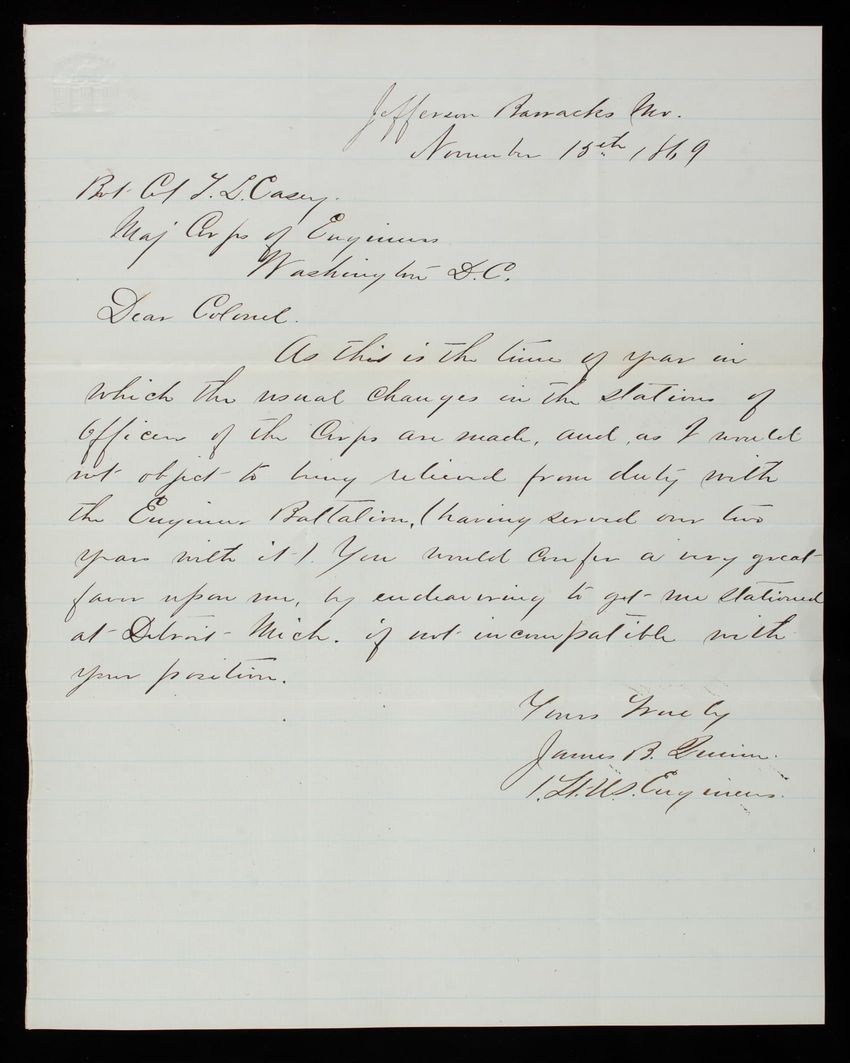 Jefferson Barracks Mo.
November 15th, 1869
Bvt Col T. L. Casey.
Maj Corps of Engineers
Washington D.C.
Dear Colonel.
As this is the time of year in
which the usual changes in the stations of
Officers of the Corps are made, and, as I would
not object to being relieved from duty with
the Engineer Battalion, (having served over two
years with it). You would confer a very great
favor upon me, by endeavoring to get me stationed
at Detroit Mich. if not incompatible with
your position.
Yours Truely
James B. Quinn.
1. Lt. U.S. Engineers.